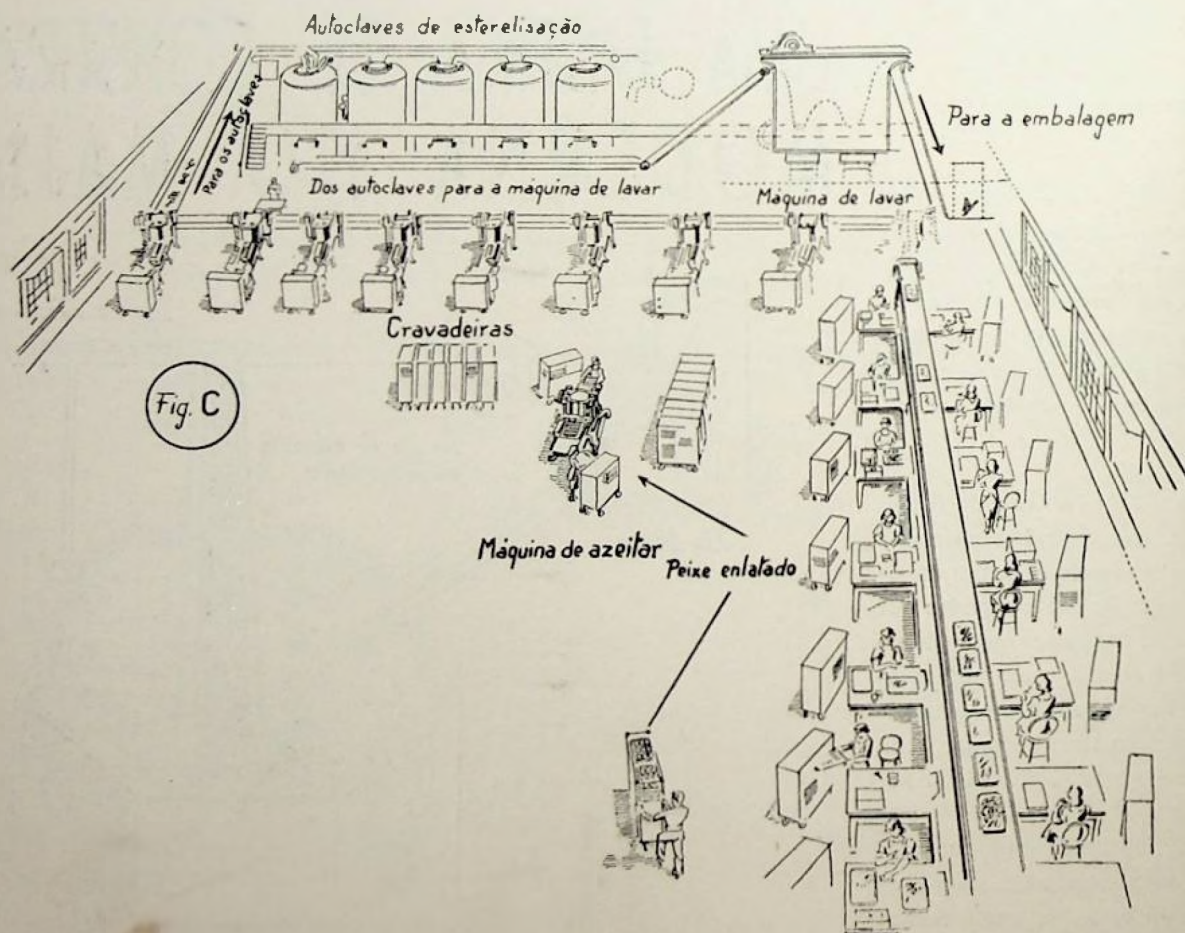 Autoclaves de esterelisação
Para os autoclaves
Para a embalagem
Dos autoclaves para a máquina de lavar
Máquina de lavar
Cravadeiras
Fig. C
Máquina de azeitar
Peixe enlatado